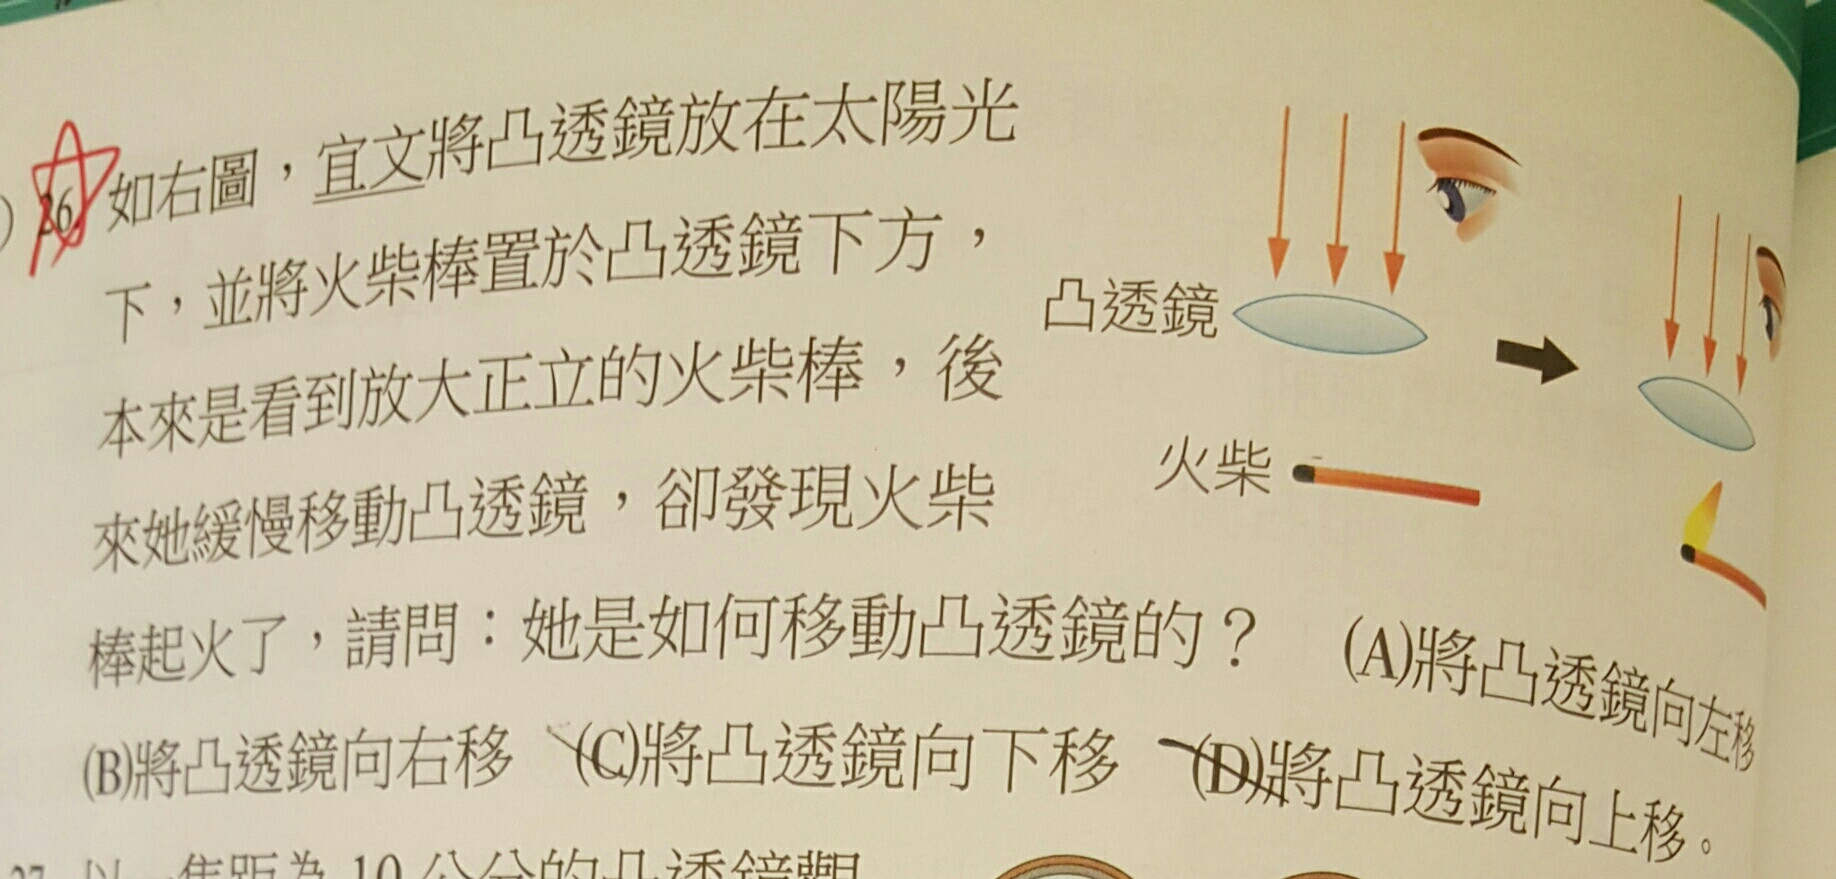 ) 26. 如右圖，宜文將凸透鏡放在太陽光
下，並將火柴棒置於凸透鏡下方，
本來是看到放大正立的火柴棒，後
來她緩慢移動凸透鏡，卻發現火柴
棒起火了，請問：她是如何移動凸透鏡的？ (A)將凸透鏡向左移
(B)將凸透鏡向右移 (C)將凸透鏡向下移 (D)將凸透鏡向上移。
凸透鏡
火柴
27. 以一焦距為 10 公分的凸透鏡觀